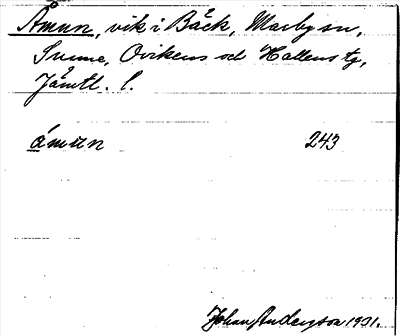 Åmun, vik i Bäck, Marby sn,
Sunne, Ovikens och Hallens tg,
Jämtl. l.
åmun 243
Johan Anderson 1931.